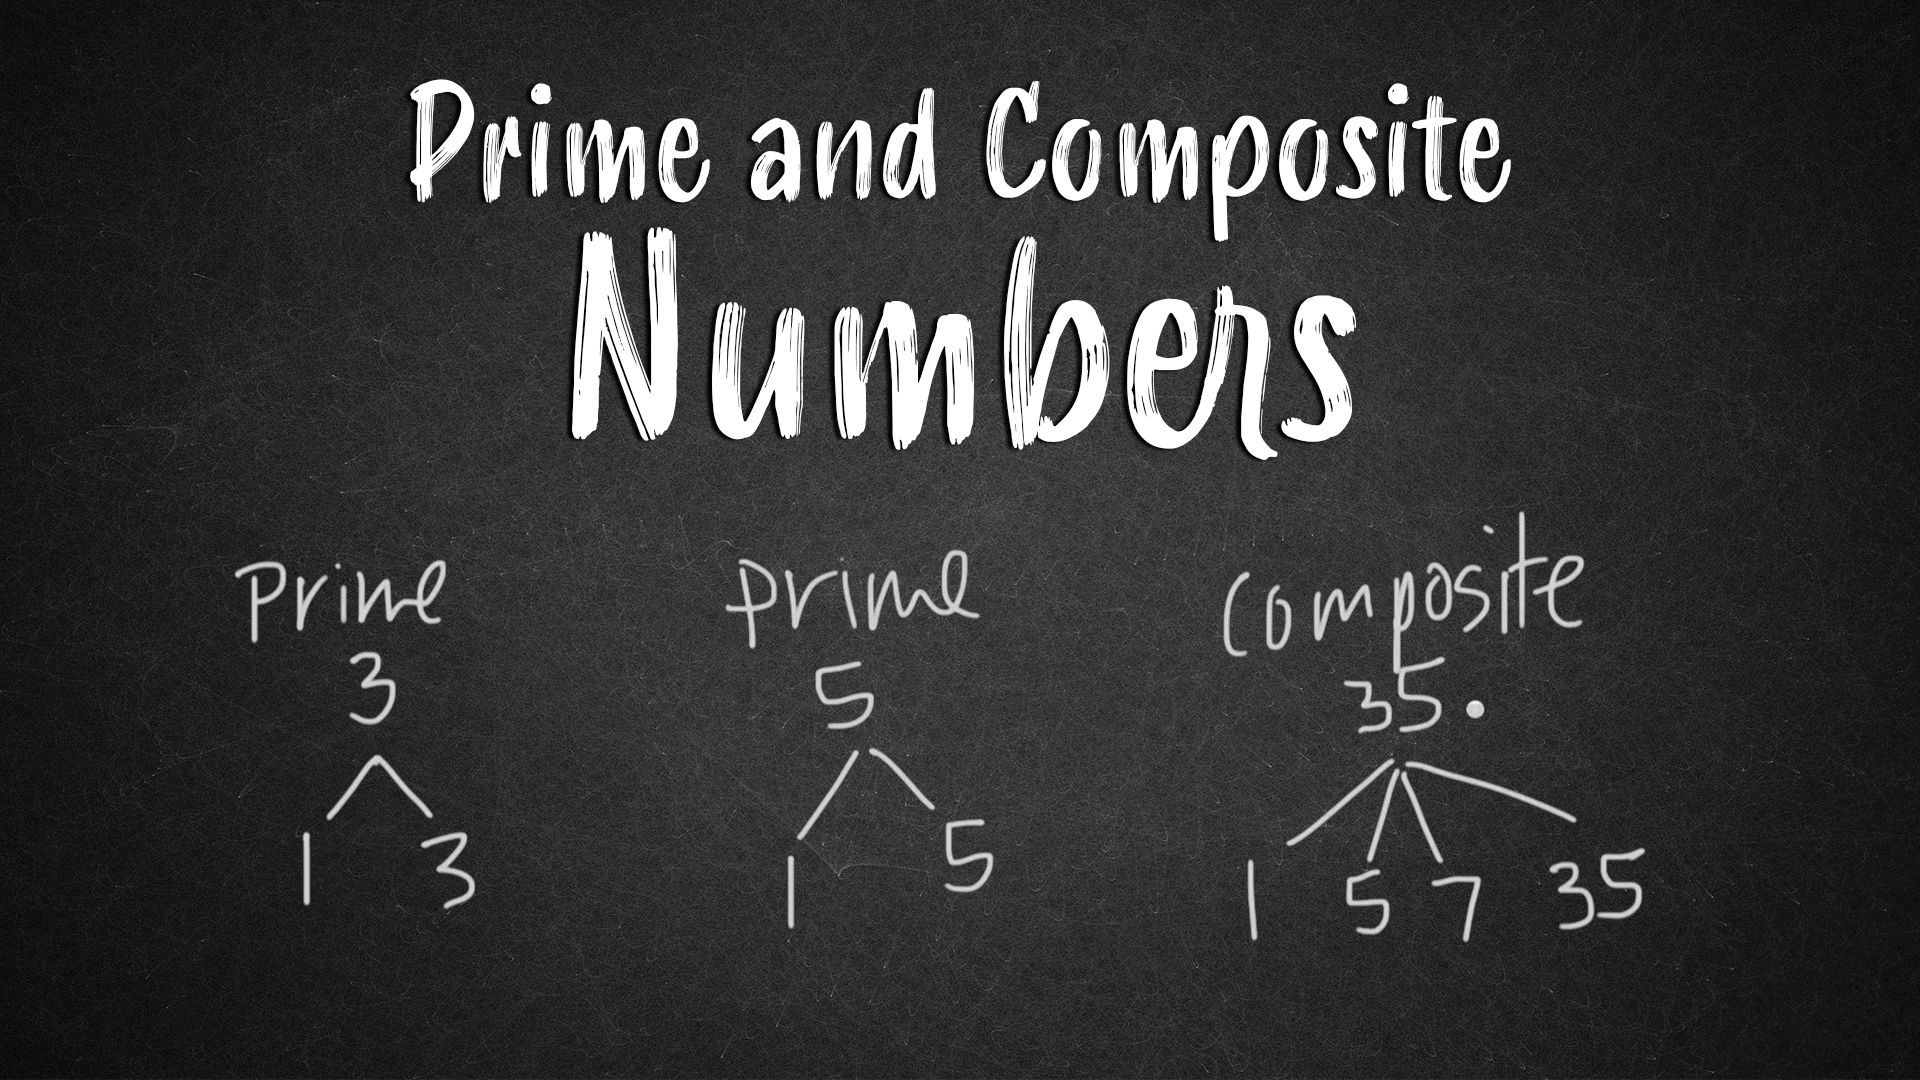 Prime and Composite
Numbers
Prime prime composite
3 5 35.
1 3 1 5 1 5 7 35